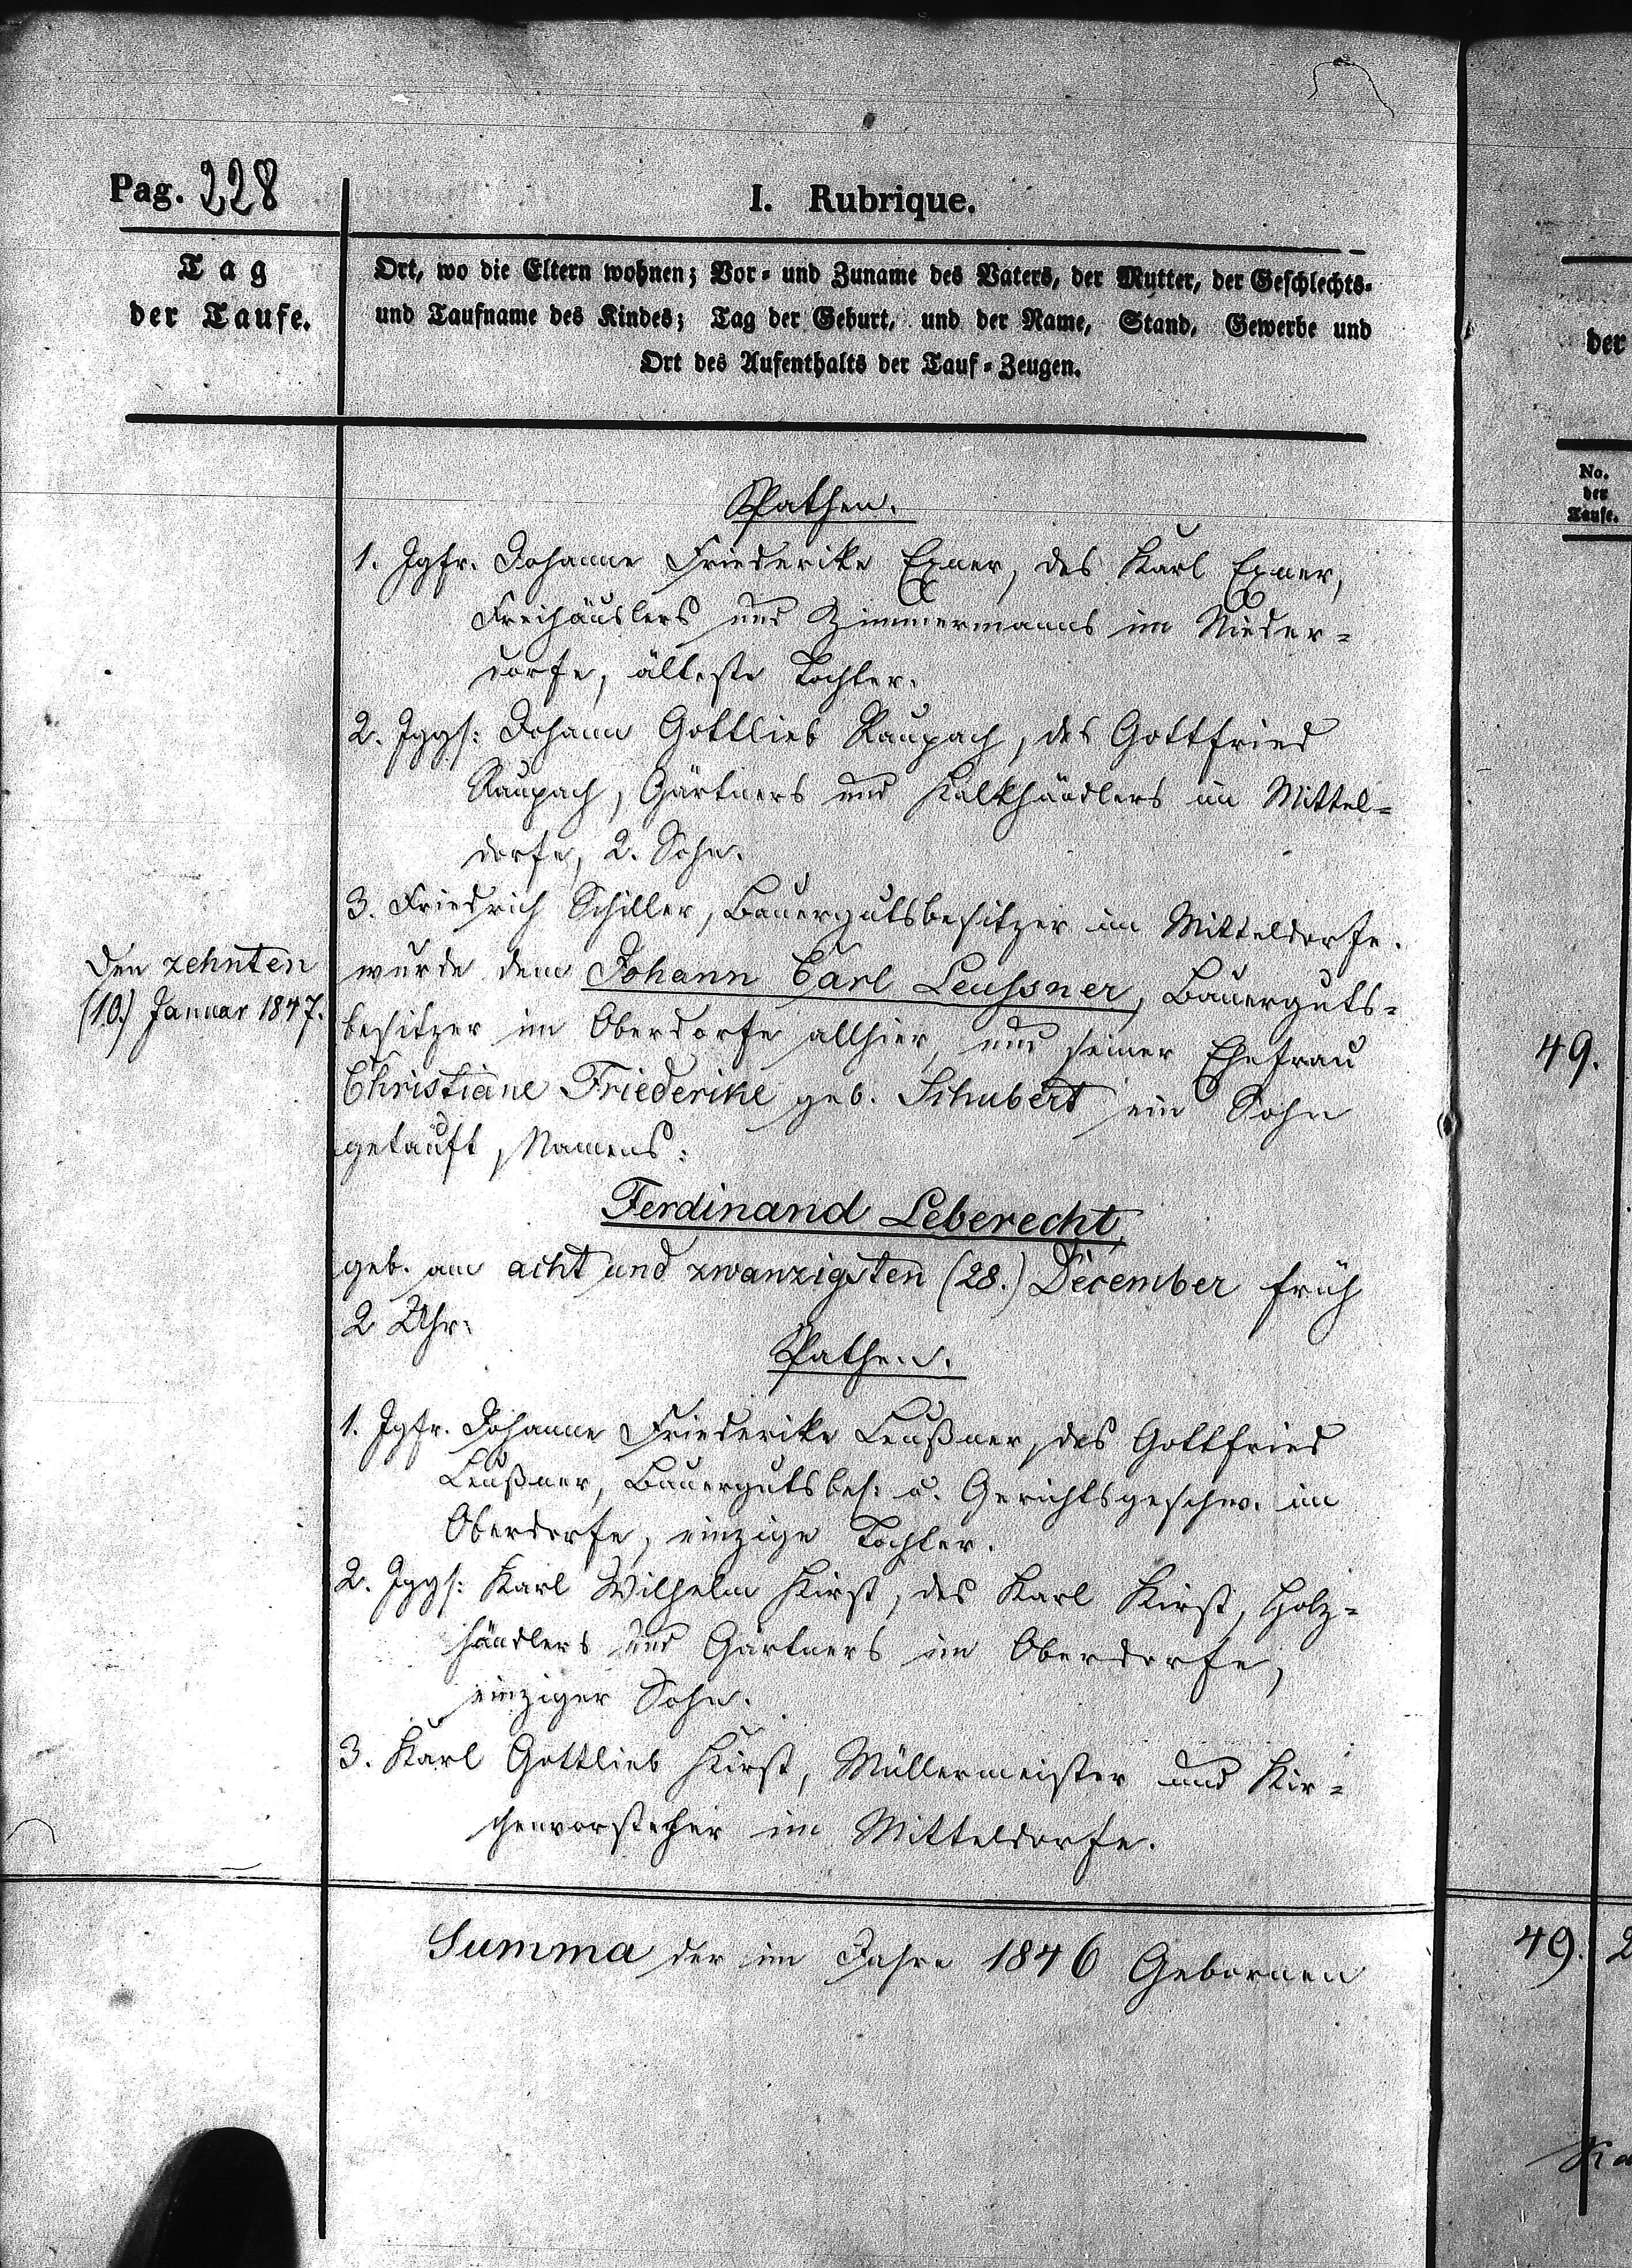 Pag. 228
I. Rubrique.
Tag
der Taufe.
Ort, wo die Eltern wohnen; Vor- und Zuname des Vaters, der Mutter, der Geschlechts-
und Taufname des Kindes; Tag der Geburt, und der Name, Stand, Gewerbe und
Ort des Aufenthalts der Tauf-Zeugen.
Pathen.
1. Jgfr. Johanne Friederike Exner, des Karl Exner,
Freihäuslers und Zimmermanns im Nieder-
dorfe, älteste Tochter.
2. Jggs: Johann Gottlieb Raupach, des Gottfried
Raupach, Gärtners und Kalkhändlers im Mittel-
dorfe, 2. Sohn.
3. Friedrich Schiller, Bauergutsbesitzer im Mitteldorfe.
Den zehnten
(10.) Januar 1847.
wurde dem Johann Carl Leussner, Bauerguts-
besitzer im Oberdorfe allhier, und seiner Ehefrau
Christiane Friederike geb. Schubert ein Sohn
getauft, Namens:
Ferdinand Leberecht,
geb. am acht und zwanzigsten (28.) December früh
2 Uhr.
Pathen.
1. Jgfr. Johanne Friederike Leußner, des Gottfried
Leußner, Bauergutsbes: u. Gerichtsgeschw. im
Oberdorfe, einzige Tochter.
2. Jggs: Karl Wilhelm Hirst, des Karl Hirst, Holz-
händlers und Gärtners im Oberdorfe,
einziger Sohn.
3. Karl Gottlieb Hirst, Müllermeister und Kir-
chenvorsteher im Mitteldorfe.
Summa der im Jahre 1846 Gebornen
der
No.
der
Taufe.
49.
49. 2